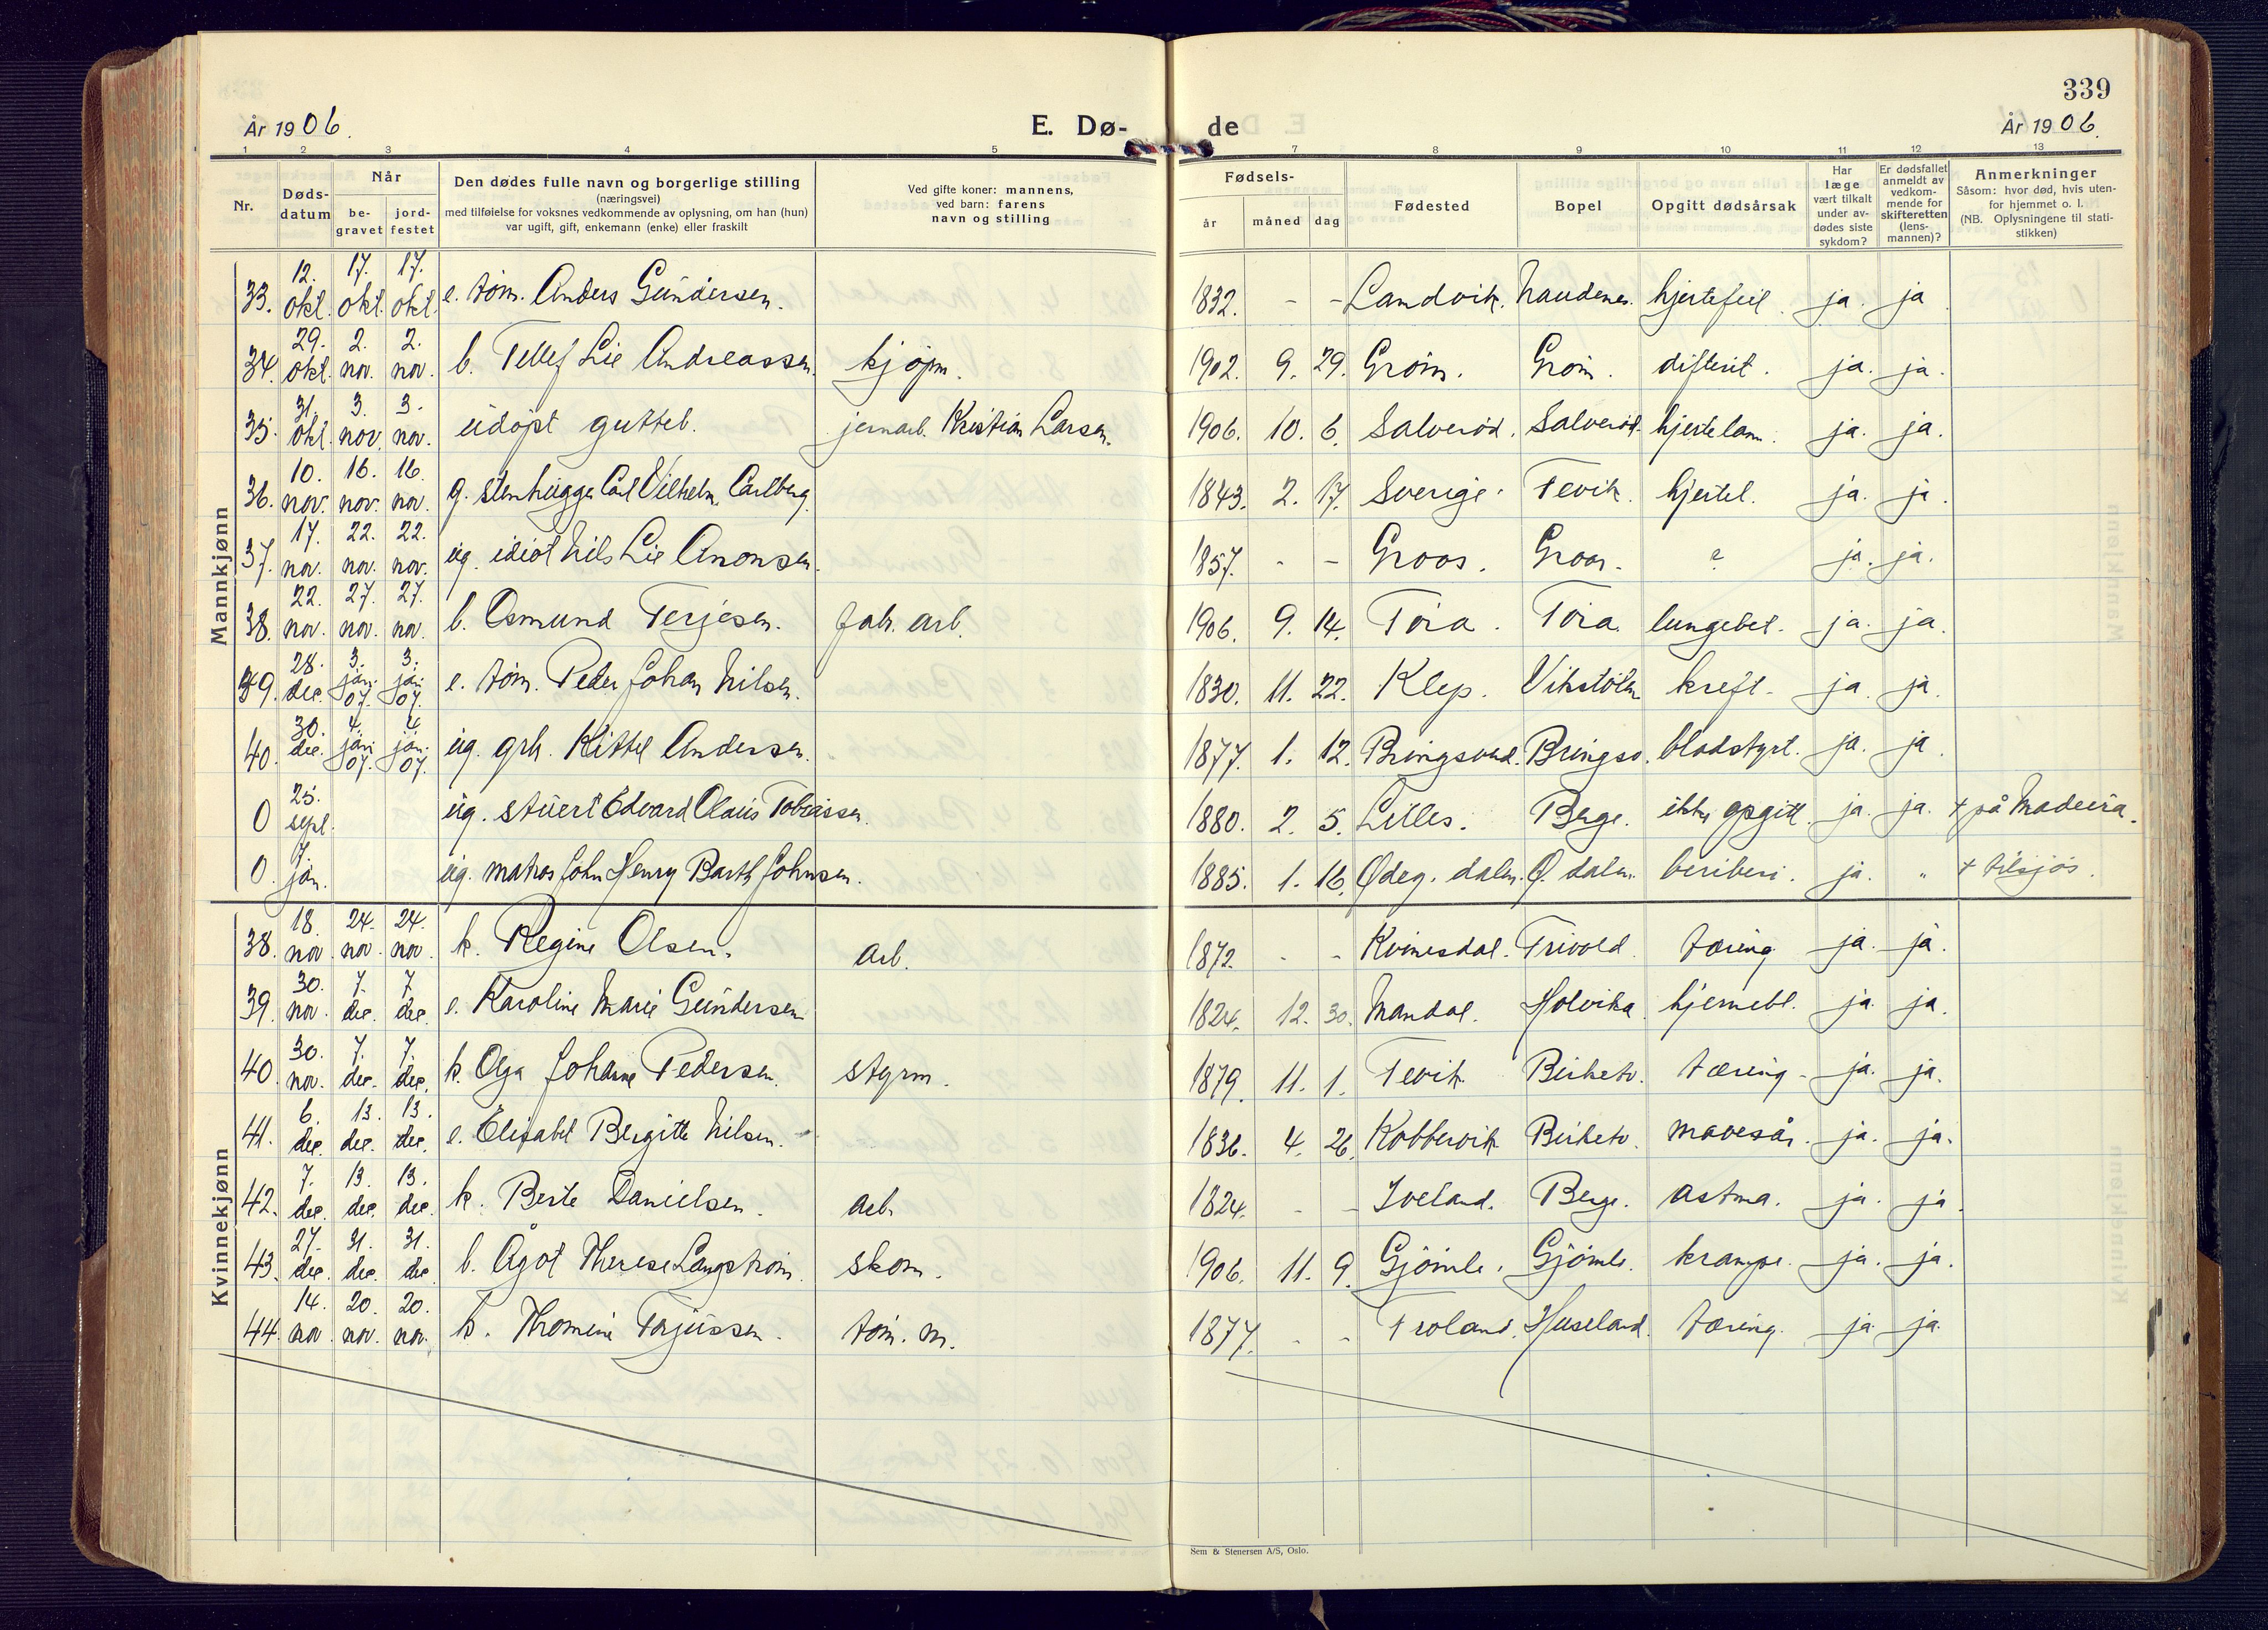 339
År 1906. E. Dø- de År 1906.
1 2 3 4 5 7 8 9 10 11 12 13
Nr. Døds-datum Når be-gravet jord-festet Den dødes fulle navn og borgerlige stilling (næringsvei) med tilføielse for voksnes vedkommende av oplysning, om han (hun) var ugift, gift, enkemann (enke) eller fraskilt Ved gifte koner: mannens, ved barn: farens navn og stilling Fødsels- år måned dag Fødested Bopel Opgitt dødsårsak Har læge vært tilkalt under av-dødes siste sykdom? Er dødsfallet anmeldt av vedkom-mende for skifteretten (lens-mannen)? Anmerkninger Såsom: hvor død, hvis uten-for hjemmet o. l. (NB. Oplysningene til stati-stikken)
Mannkjønn
33. 12. okt. 17. okt. 17. okt. e. tøm. Anders Gundersen. 1832. - - Landvik. Naudenes. hjertefeil. ja. ja
34. 29. okt. 2. nov. 2. nov. b. Tellef Lie Andreassen. kjøpm. 1902. 9. 29. Grøm. Grøm. difterit. ja. ja.
35. 31. okt. 3. nov. 3. nov. udøpt gutteb. jernarb. Kristian Larsen. 1906. 10. 6. Salverød. Salverød. hjertelam. ja. ja.
36. 10. nov. 16. nov. 16. nov. g. stenhugger Carl Vilhelm Carlberg. 1843. 2. 17. Sverige. Fevik. hjertel. ja. ja.
37. 17. nov. 22. nov. 22. nov. ug. idiot Nils Lie Anonsen. 1857. - - Groos. Groos. ja. ja.
38. 22. nov. 27. nov. 27. nov. b. Osmund Terjesen. fabr. arb. 1906. 9. 14. Tøra. Tøra. lungebet. ja. ja.
39. 28. dec. 3. jan. 07. 3. jan. 07. e. tøm. Peder Johan Nilsen. 1830. 11. 22. Klep. Vikstølen kreft. ja. ja.
40. 30. dec. 4. jan. 07. 4. jan. 07. ug. grb. Kittel Andersen. 1877. 1. 12. Bringsverd. Bringsv. blodstyrt. ja. ja.
0 25. sept. ug. stuert Edvard Olaus Tobiassen. 1880. 2. 5. Lilles. Berge. ikke opgitt. ja. ja. + på Madeira.
0. 7. jan. ug. matros John Henry Barth Johnsen. 1885. 1. 16. Ødeg. dalen. Ø. dalen. beriberi. ja. " + tilsjøs.
Kvinnekjønn
38. 18. nov. 24. nov. 24. nov. k. Regine Olsen. arb. 1872. - - Kvinesdal. Trivold. tæring ja. ja.
39. 30. nov. 7. dec. 7. dec. e. Karoline Marie Gundersen 1824. 12. 30. Mandal. Holvika. hjernebl. ja. ja.
40. 30. nov. 7. dec. 7. dec. k. Olga Johanne Pedersen. styrm. 1879. 11. 1. Fevik Birketv. tæring. ja. ja.
41. 6. dec. 13. dec. 13. dec. e. Elisabet Bergitte Nilsen. 1836. 4. 26. Kobbervik Birketv. mavesår. ja. ja.
42. 7. dec. 13. dec. 13. dec. k. Berte Danielsen. arb. 1824. - - Iveland. Berge. astma. ja. ja.
43. 27. dec. 31. dec. 31. dec. b. Ågot Therese Langstrøm. skom. 1906. 11. 9. Gjømle. Gjømle. krampe. ja. ja.
44. 14. nov. 20. nov. 20. nov. k. Thomine Terjussen. tøm. m. 1877. - - Froland. Huseland. tæring. ja ja.
Sem & Stenersen A/S, Oslo.